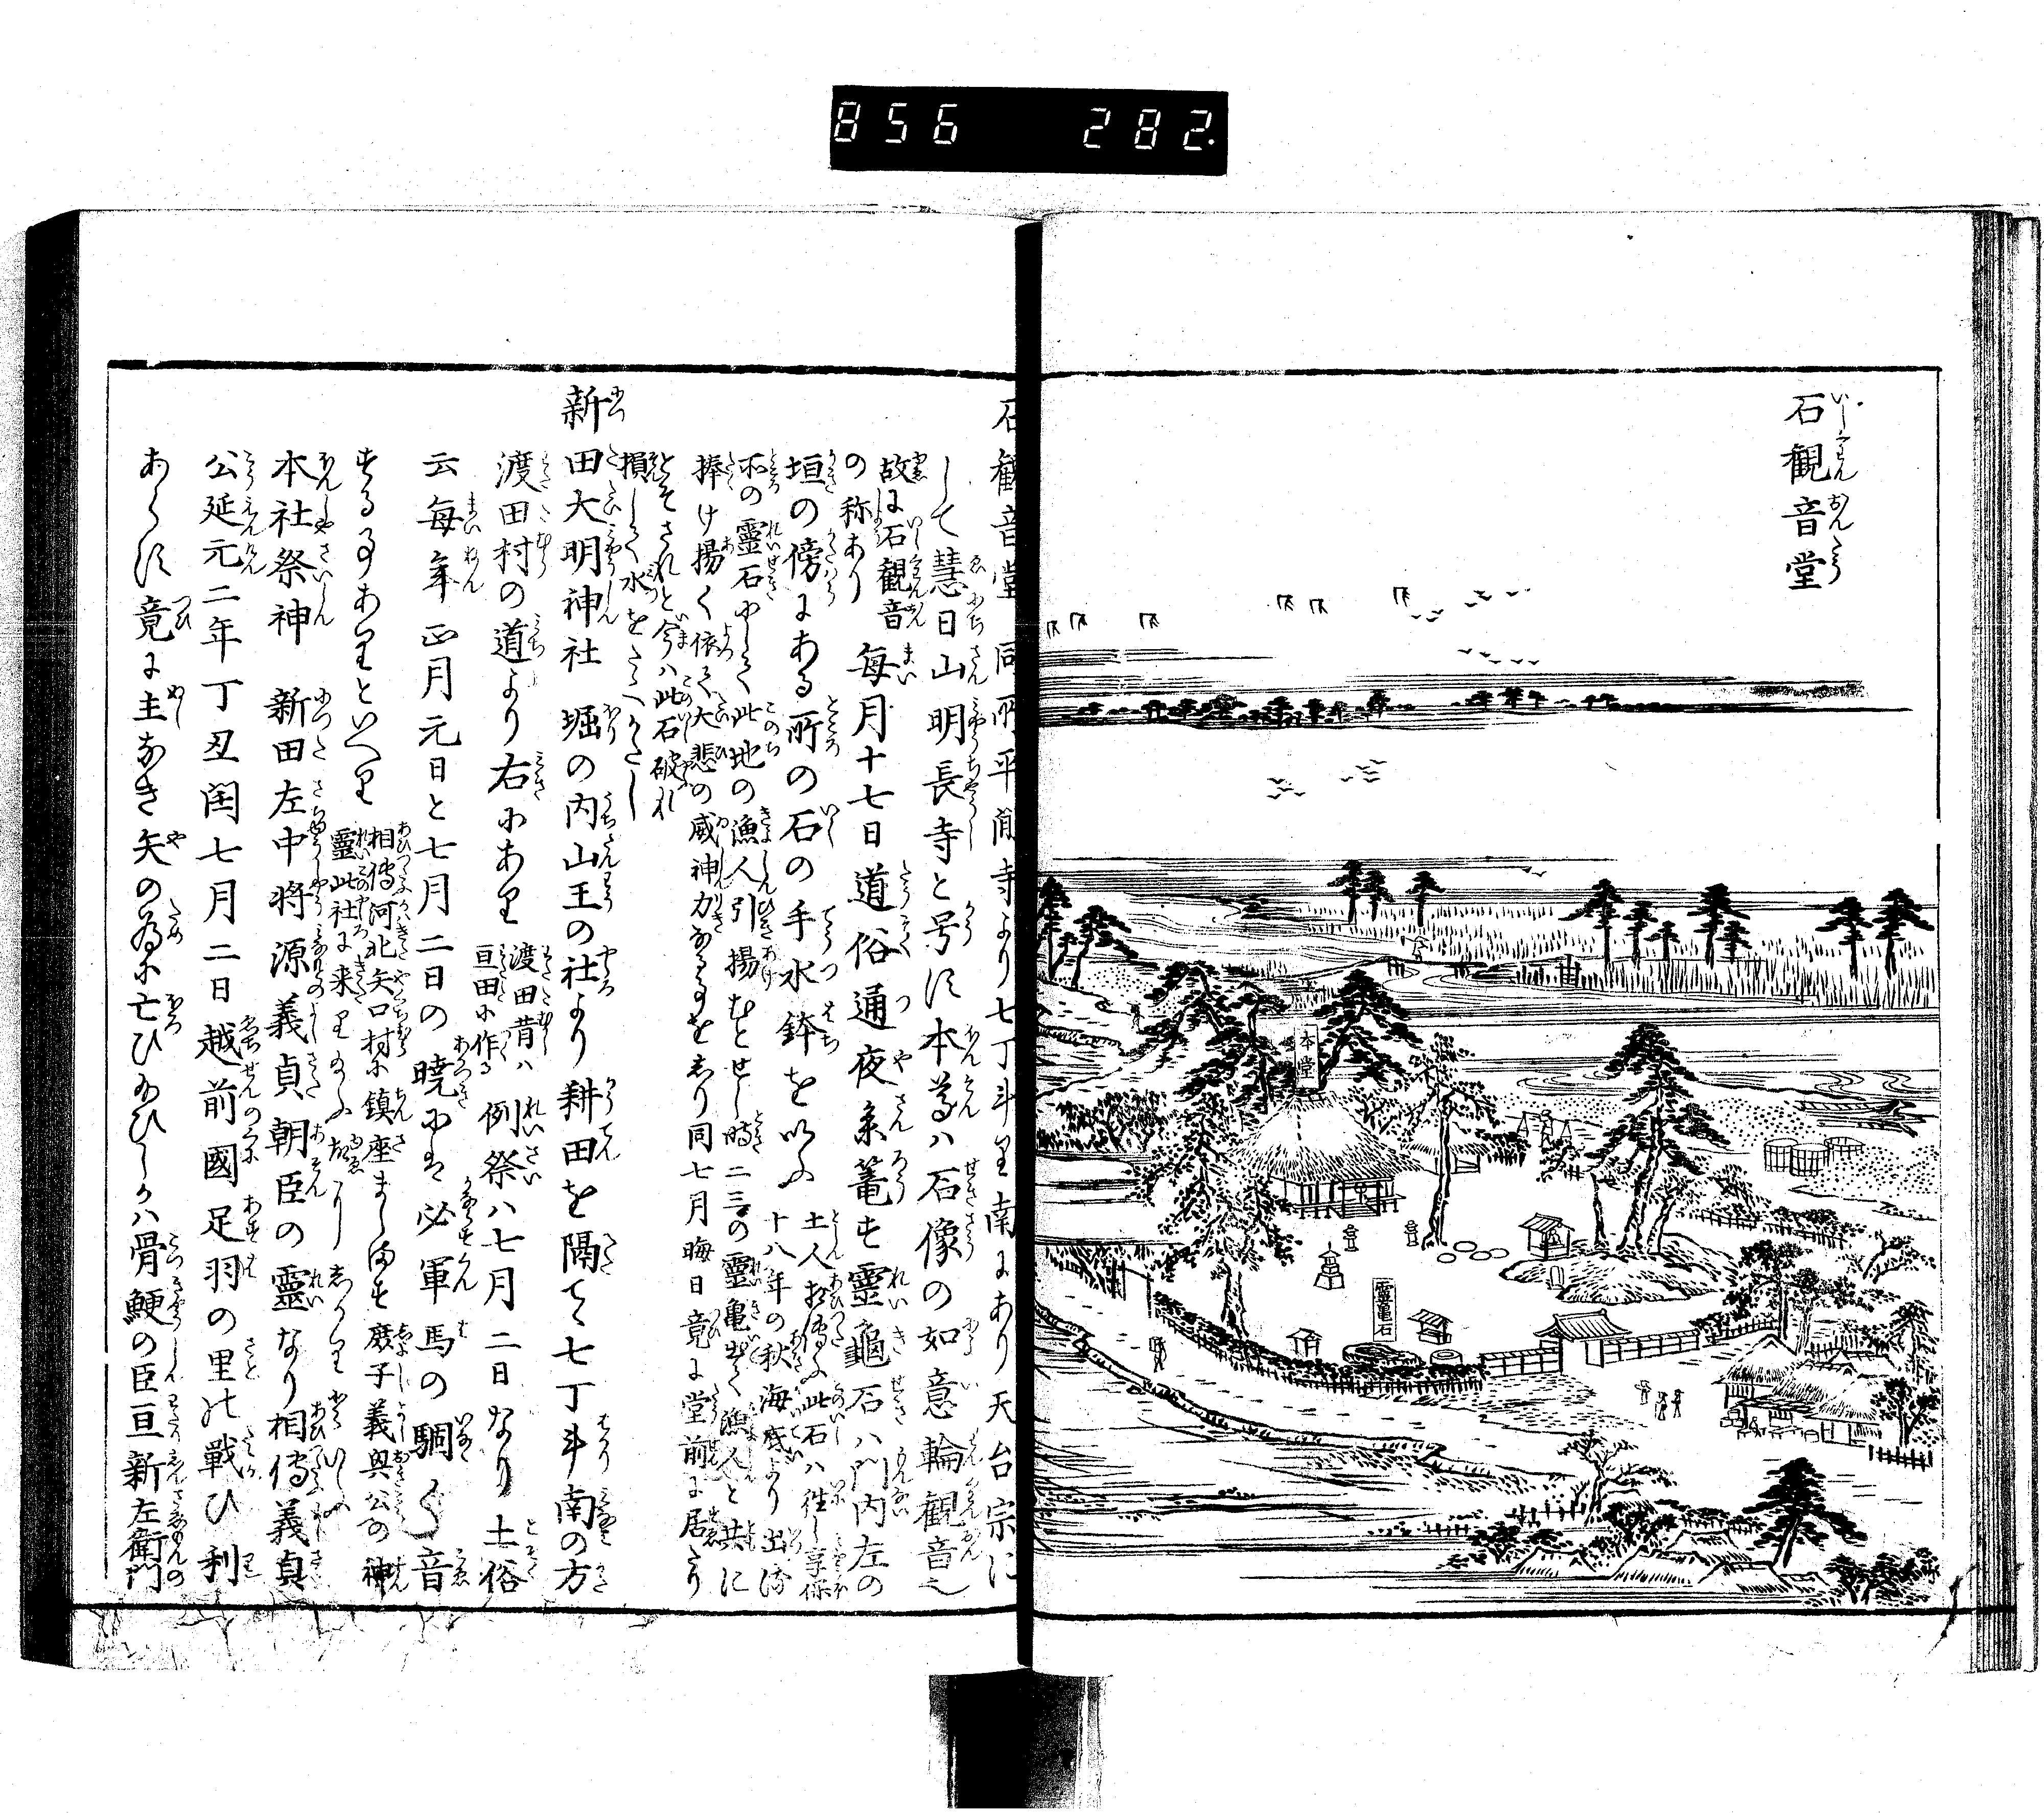 856 282.
石観音堂
本堂
霊亀石
石観音堂 同所平間寺より七丁斗り南にあり天台宗に
して慧日山明長寺と号す本尊ハ石像の如意輪観音也
故に石観音
の称あり
毎月十七日道俗通夜参篭す霊龜石ハ門内左の
垣の傍にある所の石の手水鉢を以ふ
土人相傳ふ此石ハ往し享保
十八年の秋海底より出済
所の靈石にして此地の漁人引揚むとせし時二三の靈亀出て漁人と共に
捧け揚く依て大悲の威神力なる事をしり同七月晦日竟に堂前に居たり
とそされと今ハ此石破れ
損して水をたゝへかたし
新田大明神社 堀の内山王の社より耕田を隔て七丁斗南の方
渡田村の道より右にあり
渡田昔ハ
亘田に作る
例祭ハ七月二日なり土俗
云毎年正月元日と七月二日の暁にハ必軍馬の騆く音
する事ありといへり
相傳河北矢口村に鎮座まします庶子義興公の神
靈此社に来り
本社祭神 新田左中将源義貞朝臣の靈なり相傳義貞
公延元二年丁丑閏七月二日越前國足羽の里の戰ひ利
あらす竟に主なき矢の為に亡ひ給ひしかハ骨鯁の臣亘新左衛門